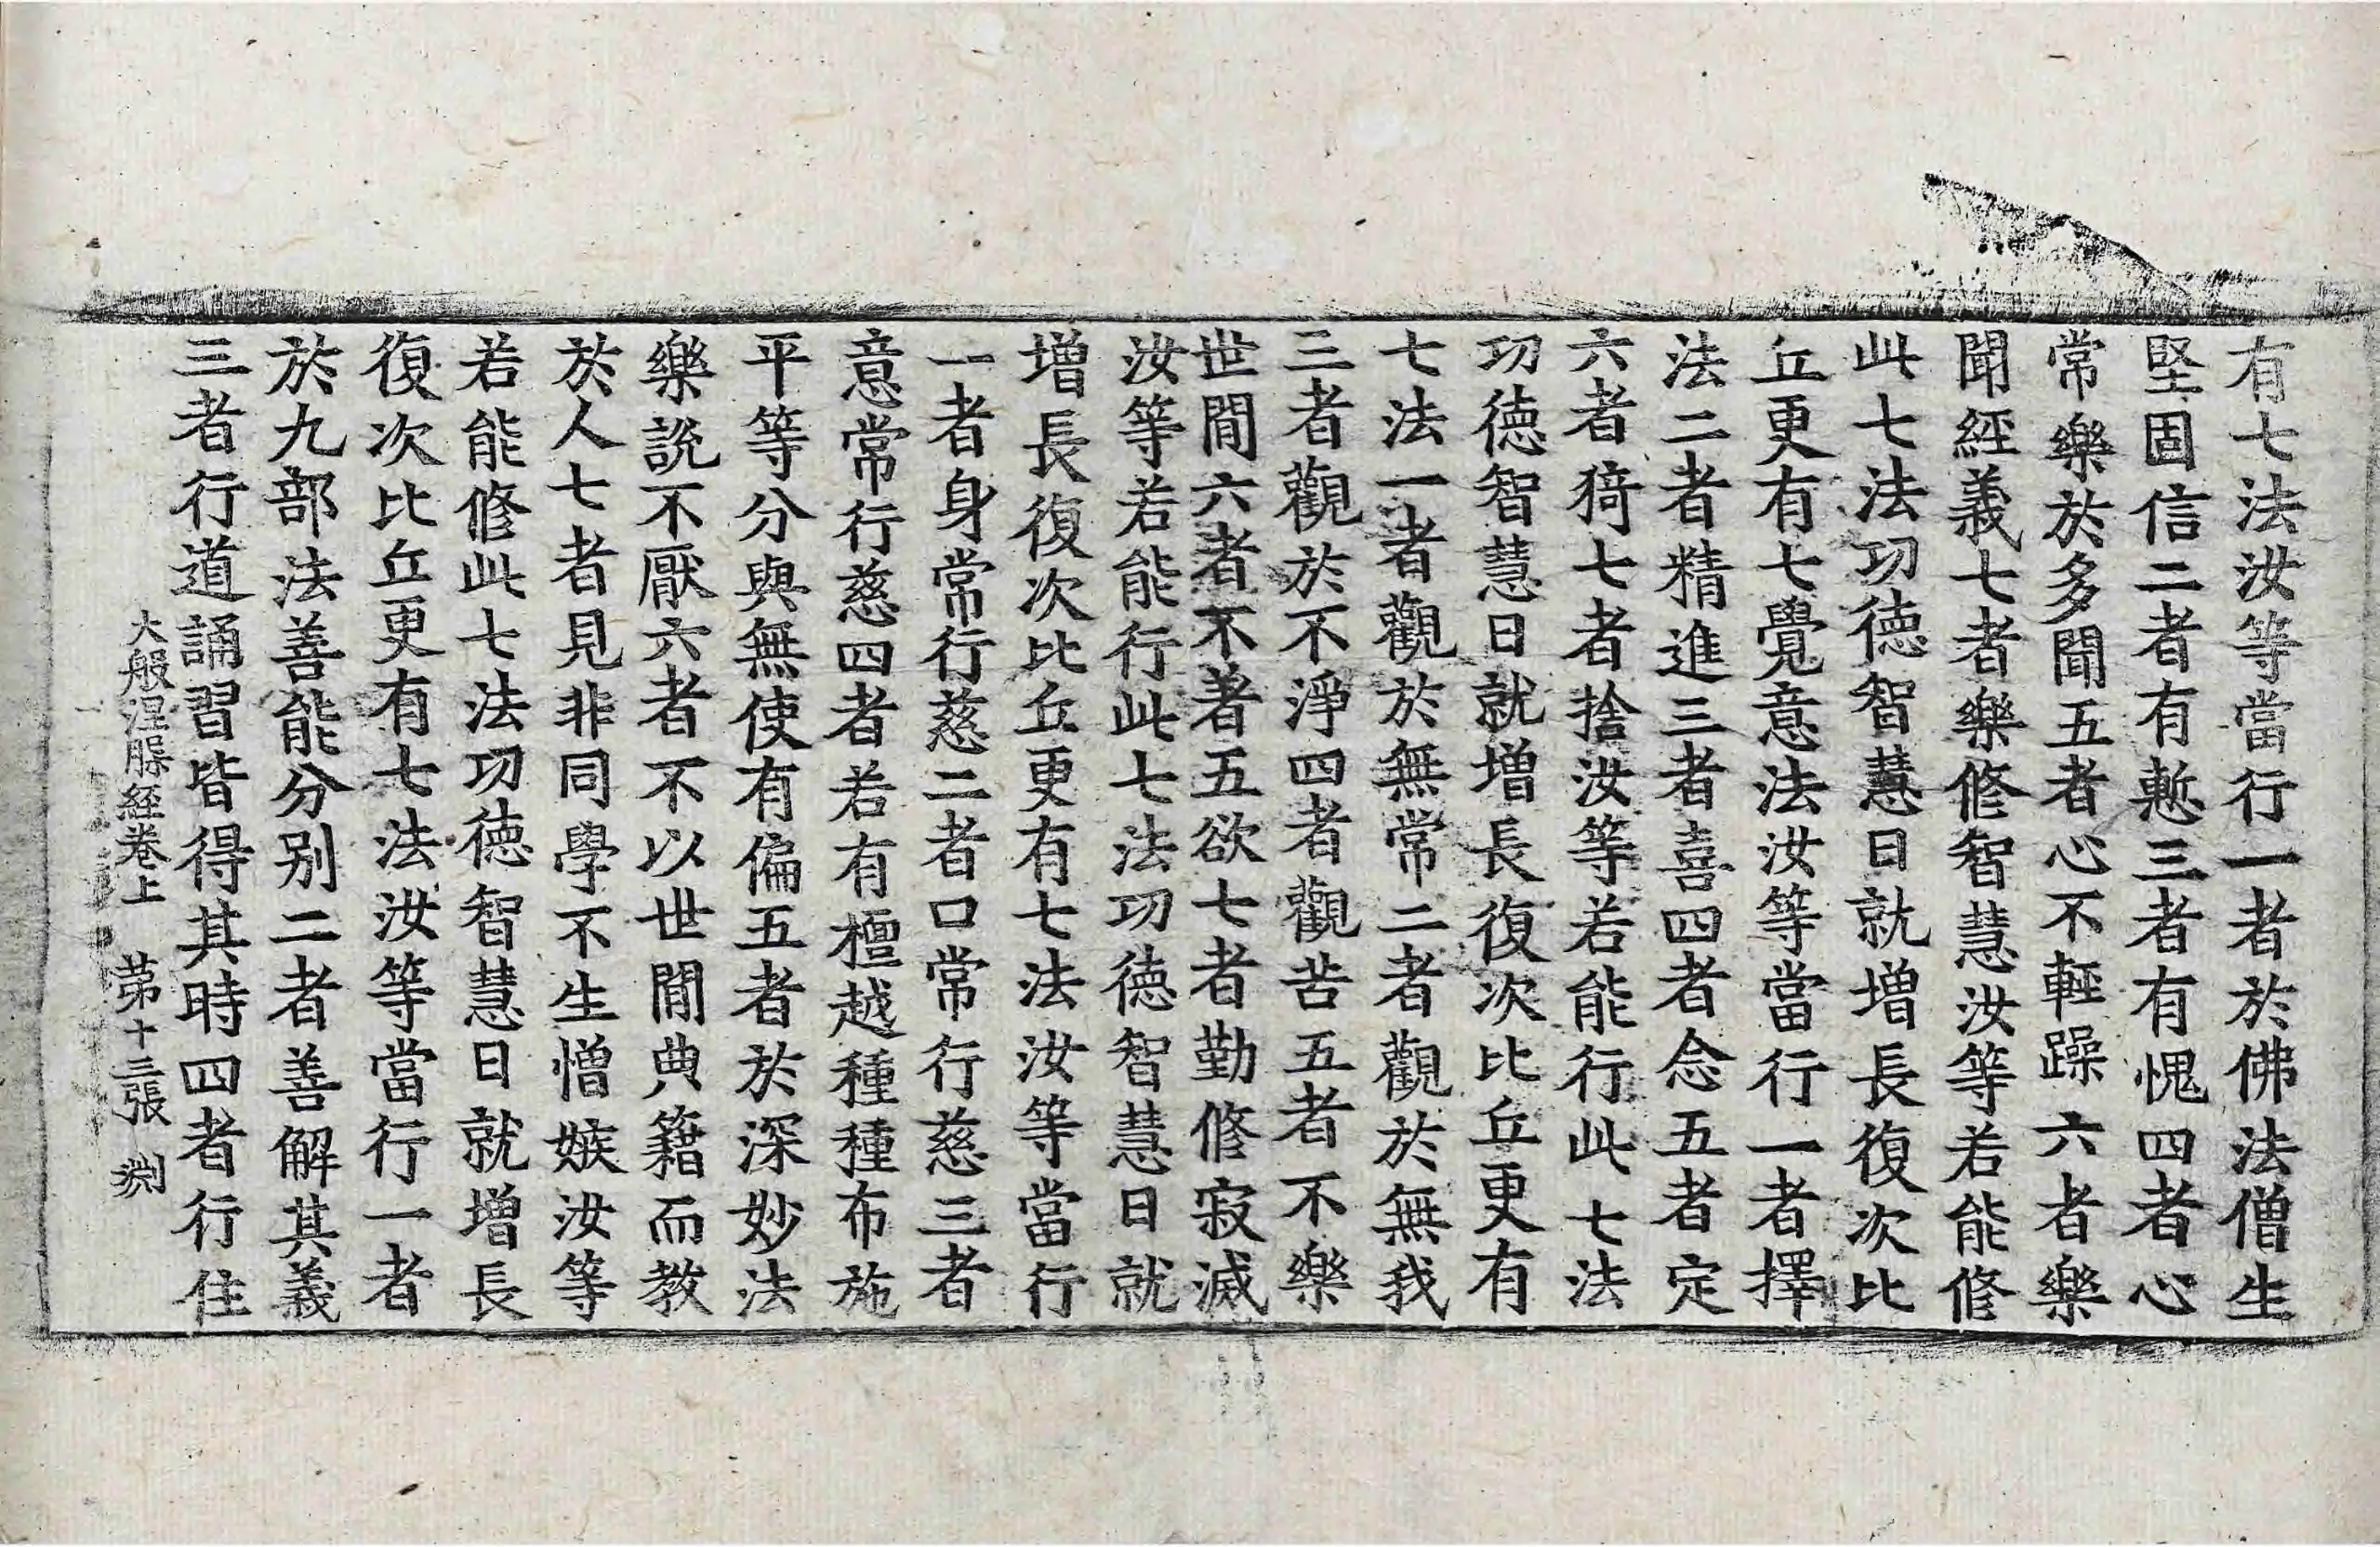 有七法汝等當行一者於佛法僧生
堅固信二者有慙三者有愧四者心
常樂於多聞五者心不輕躁六者樂
聞經義七者樂修智慧汝等若能修
此七法功德智慧日就增長復次比
丘更有七覺意法汝等當行一者擇
法二者精進三者喜四者念五者定
六者猗七者捨汝等若能行此七法
功德智慧日就增長復次比丘更有
七法一者觀於無常二者觀於無我
三者觀於不淨四者觀苦五者不樂
世間六者不著五欲七者勤修寂滅
汝等若能行此七法功德智慧日就
增長復次比丘更有七法汝等當行
一者身常行慈二者口常行慈三者
意常行慈四者若有檀越種種布施
平等分與無使有偏五者於深妙法
樂說不厭六者不以世間典籍而教
於人七者見非同學不生憎嫉汝等
若能修此七法功德智慧日就增長
復次比丘更有七法汝等當行一者
於九部法善能分别二者善解其義
三者行道誦習皆得其時四者行住
大般涅槃經卷上 第十三張